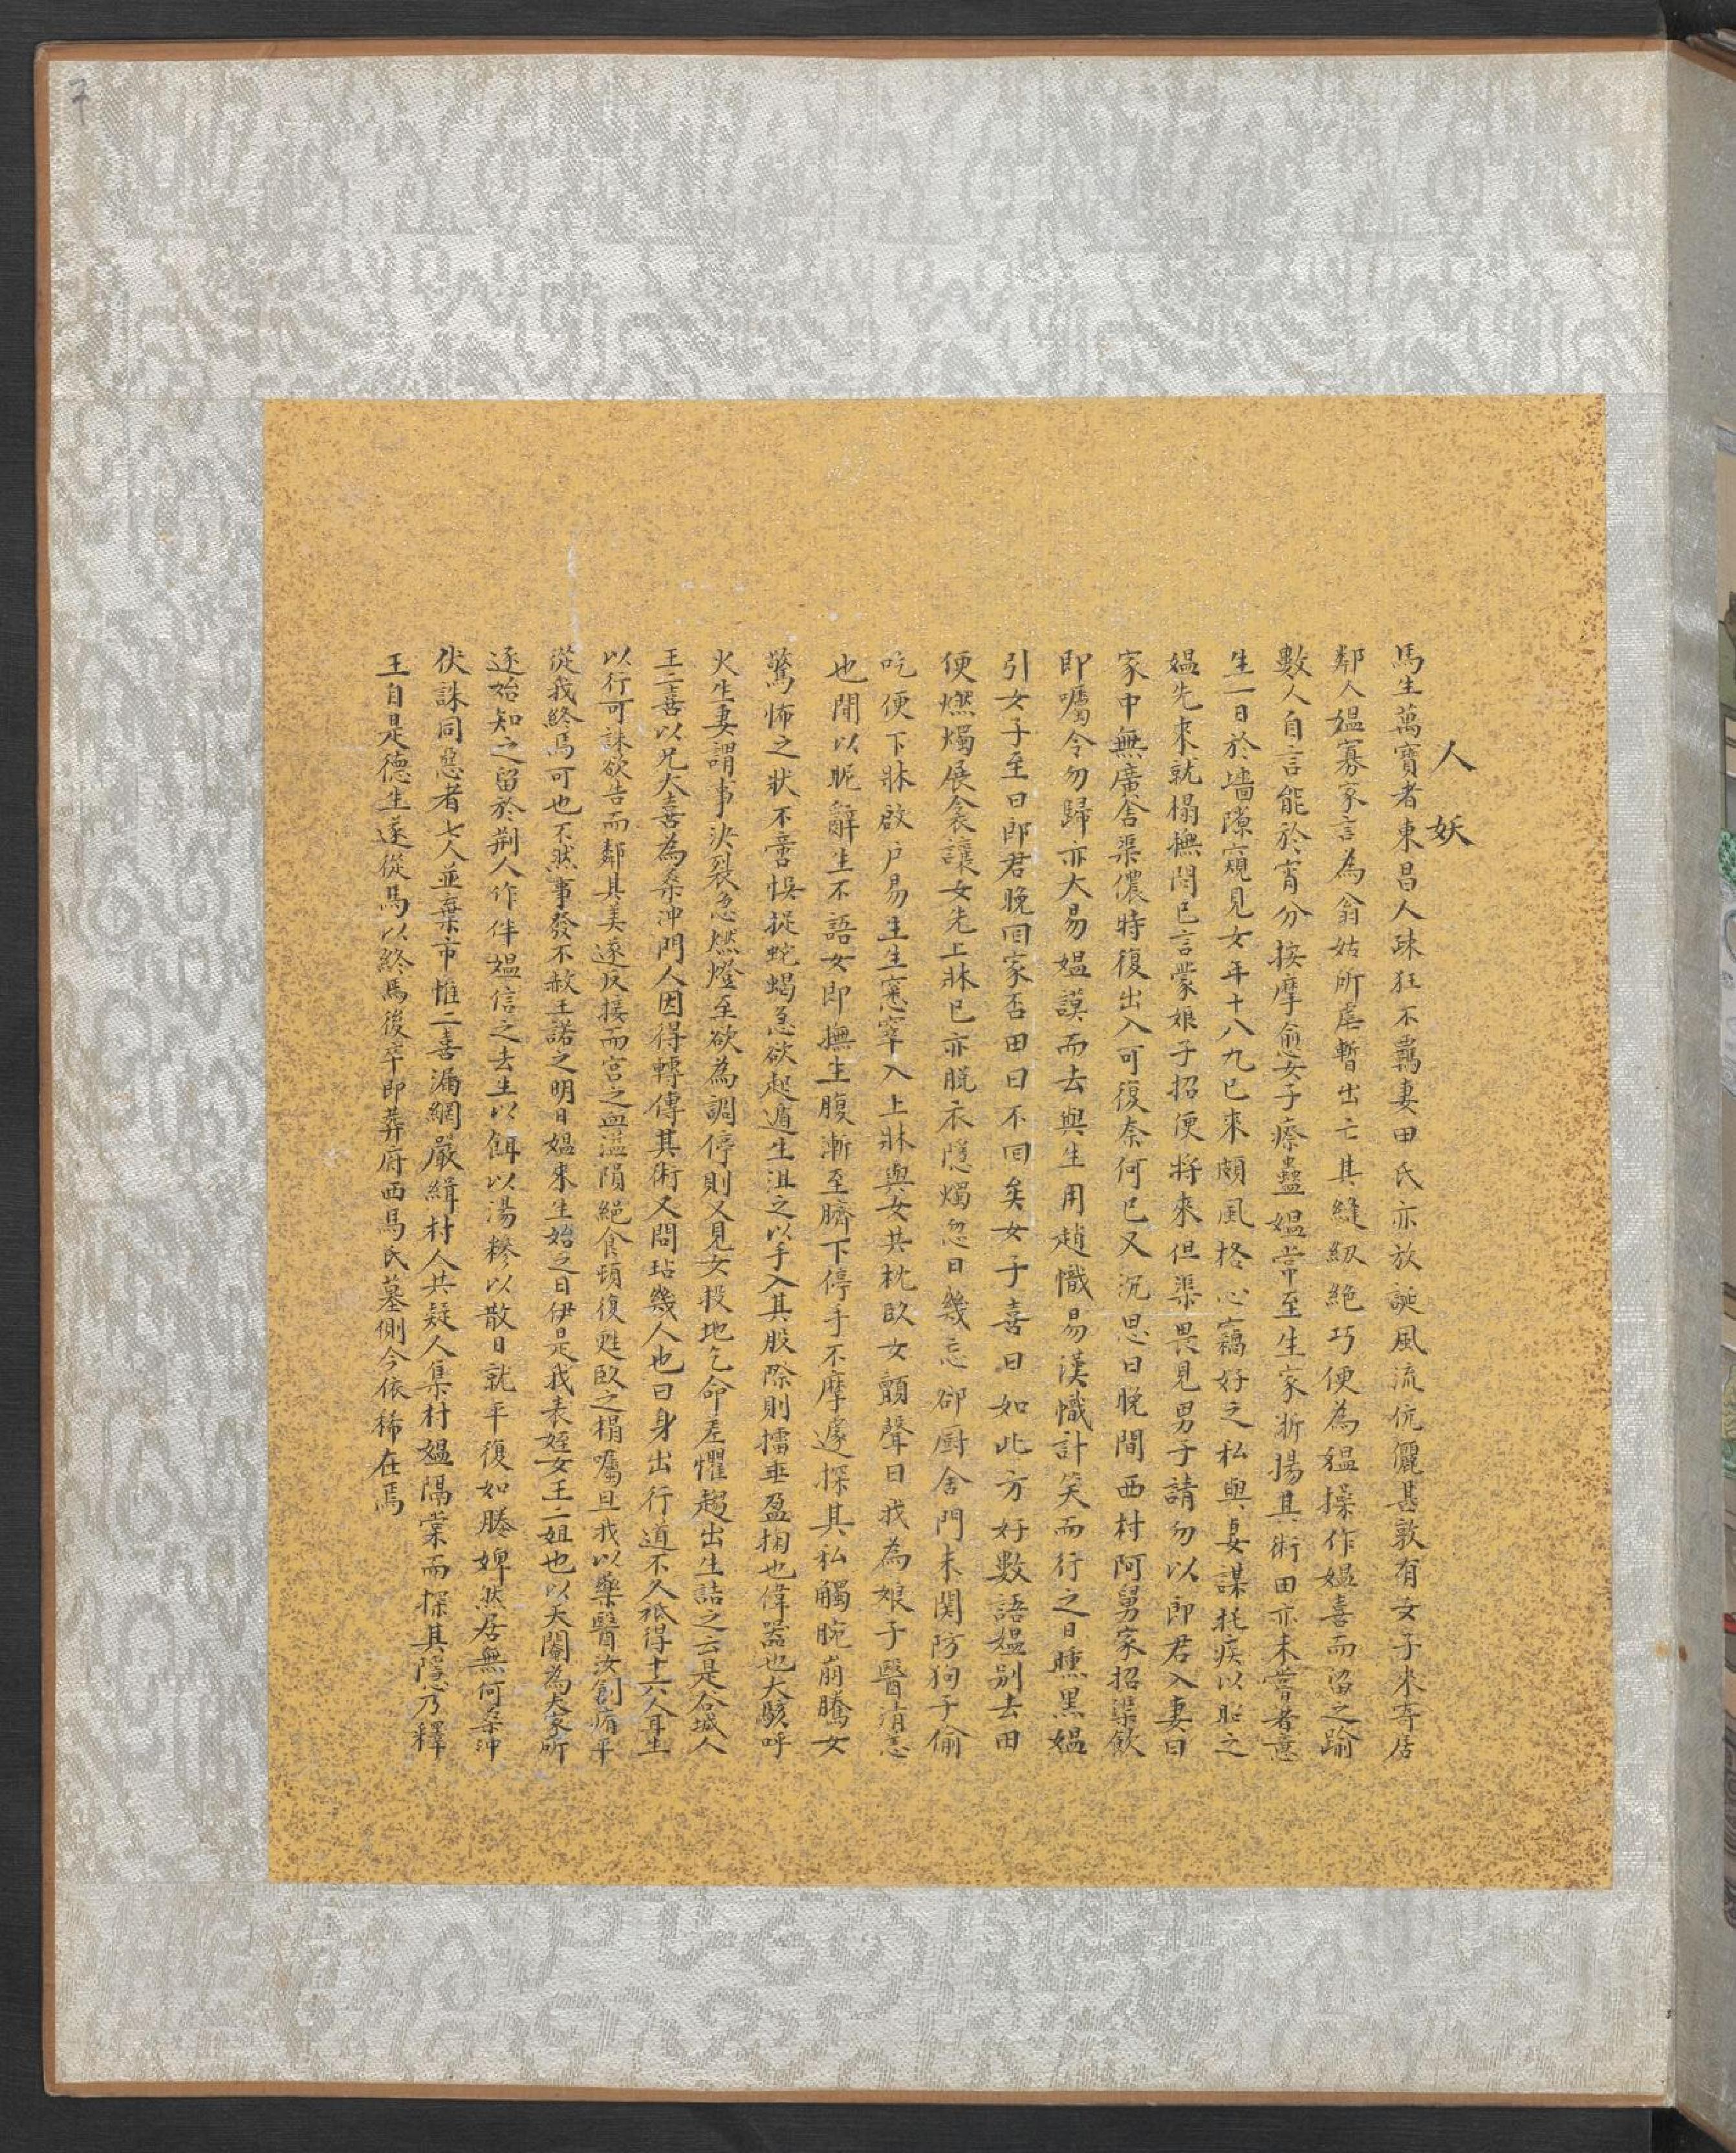 7
人妖
馬生萬寶者東昌人疎狂不羈妻田氏亦放誕風流伉儷甚敦有女子來寄居
鄰人媼寡家言為翁姑所虐暫出亡其縫紉絕巧便為媼操作媼喜而留之踰
數人自言能於宵分按摩愈女子瘵蠱媼常至生家游揚其術田亦未嘗着意
生一日於墻隙窺見女年十八九已來頗風格心竊好之私與妻謀托疾以招之
媼先來就榻撫問已言蒙娘子招便將來但渠畏見男子請勿以郎君入妻曰
家中無廣舍渠儂時復出入可復奈何已又沉思曰晚間西村阿舅家招渠飲
即囑令勿歸亦大易媼諾而去與生用趙幟易漢幟計笑而行之日曛黑媼
引女子至曰郎君晚回家否田曰不回矣女子喜曰如此方好數語媼別去田
便燃燭展衾讓女先上牀已亦脫衣隱燭忽曰幾忘卻厨舍門未関防狗子偷
吃便下牀啟户易生生窸窣入上牀與女共枕卧女顫聲曰我為娘子醫清恙
也間以昵辭生不語女即撫生腹漸至臍下停手不摩遽探其私觸腕崩騰女
驚怖之狀不啻悞捉蛇蝎急欲起遁生沮之以手入其股際則擂垂盈掬也偉器也大駭呼
火生妻謂事決裂急燃燈至欲為調停則又見女投地乞命羞懼趨出生詰之云是谷城人
王二喜以兄大喜為桑冲門人因得轉傳其術又問玷幾人也曰身出行道不久秪得十六人耳生
以行可誅欲告而鄰其美遂反接而宮之血溢隕絕食頃復甦卧之榻囑曰我以藥醫汝創痏平
從我終焉可也不然事發不赦王諾之明日媼來生紿之曰伊是我表姪女王二姐也以天閹為夫家所
逐始知之留於荆人作伴媼信之去生以餌以湯糝以散日就平復如媵婢然居無何桑冲
伏誅同惡者七人並棄市惟二喜漏網嚴緝村人共疑人集村媼隔裳而探其隱乃釋
王自是德生遂從馬以終焉後卒即葬府西馬氏墓側今依稀在焉